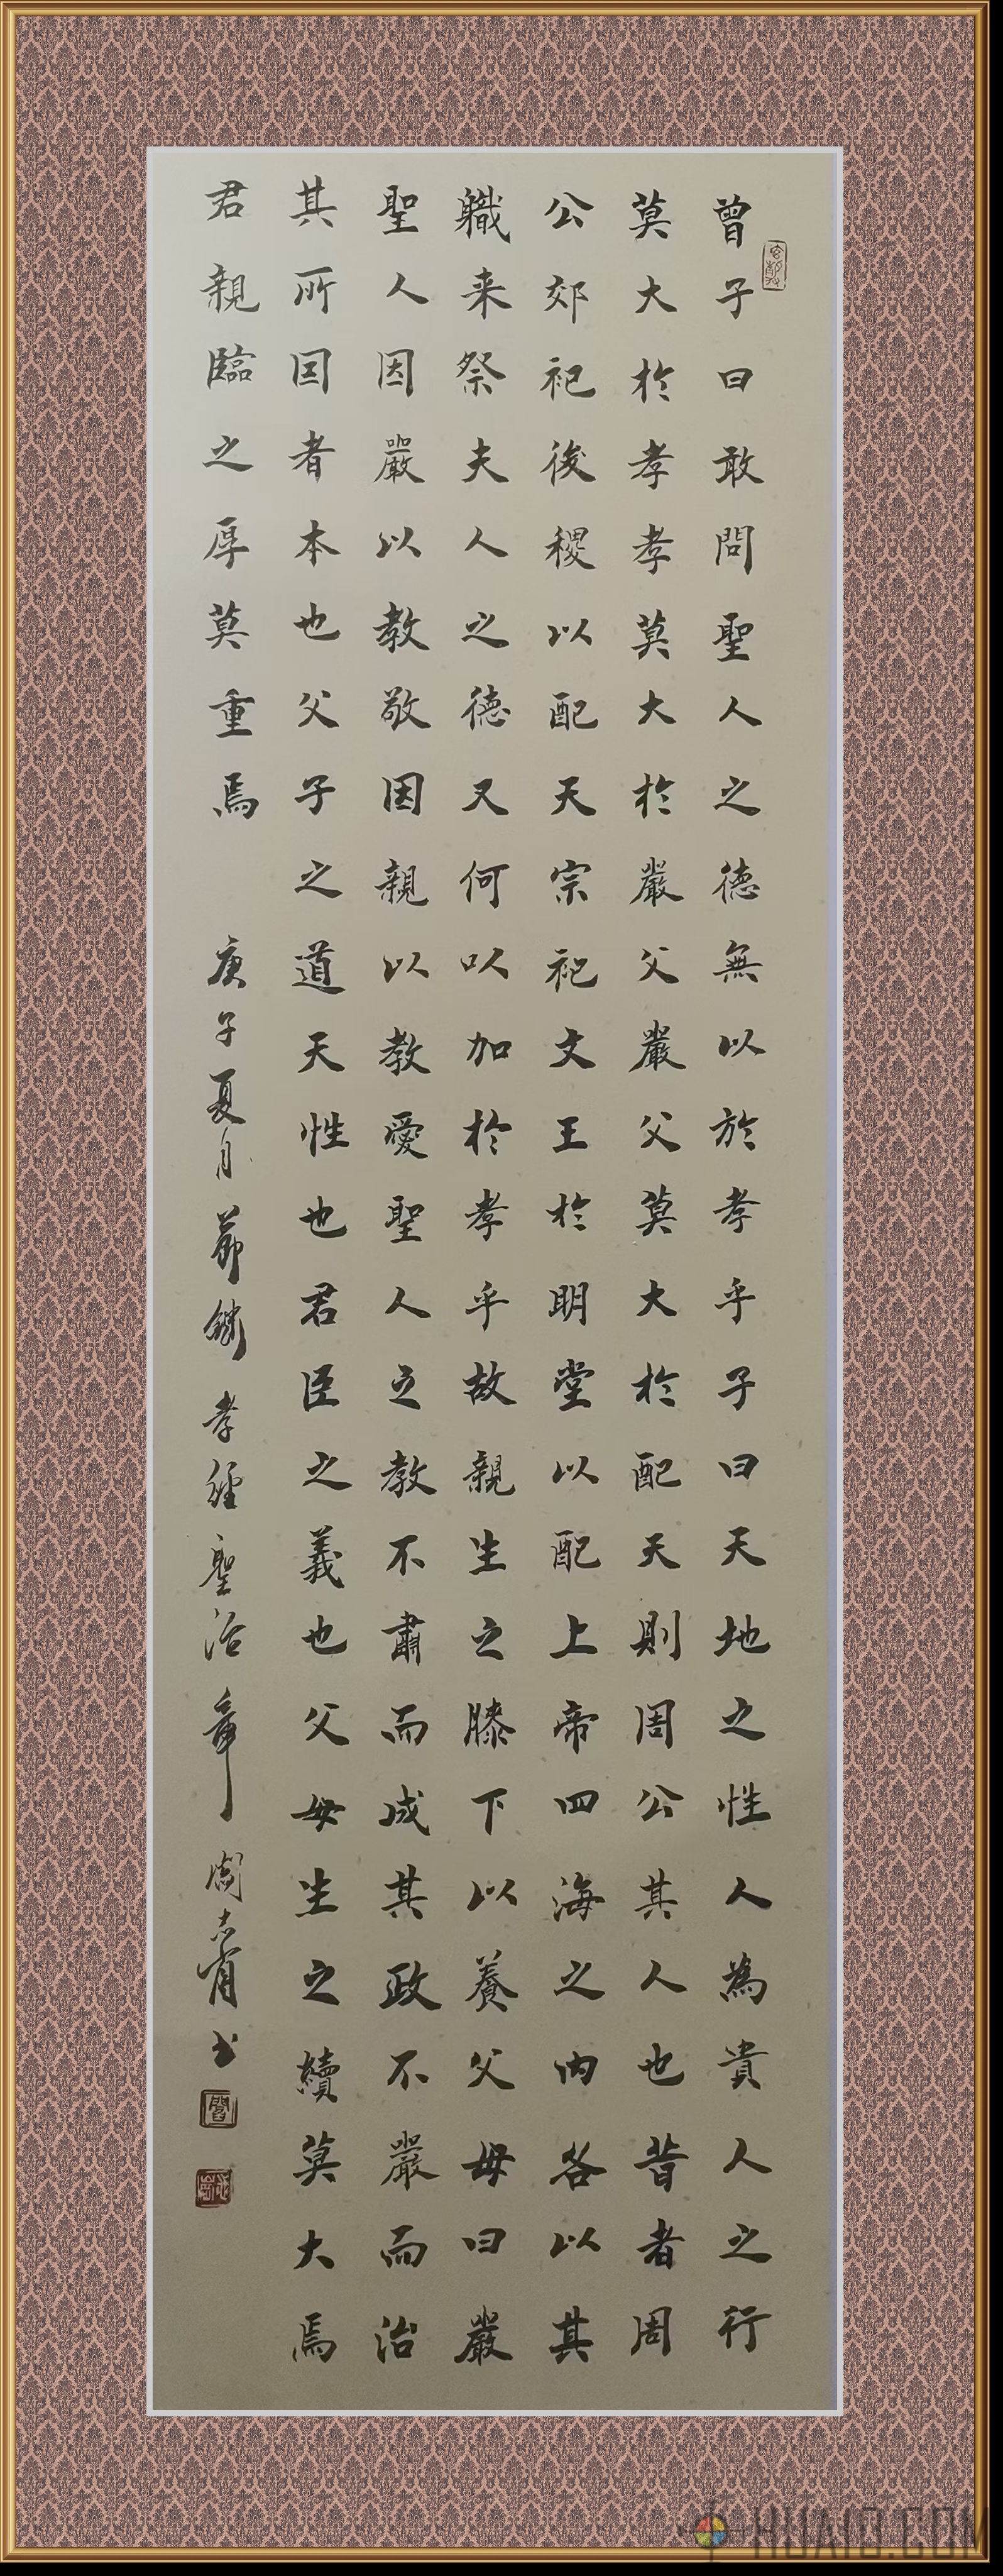 曾子曰敢問聖人之德無以於孝乎子曰天地之性人為貴人之行
莫大於孝孝莫大於嚴父嚴父莫大於配天則周公其人也昔者周
公郊祀後稷以配天宗祀文王於明堂以配上帝四海之內各以其
軄来祭夫人之德又何以加於孝乎故親生之膝下以養父母曰嚴
聖人因嚴以教敬因親以教愛聖人之教不肅而成其政不嚴而治
其所因者本也父子之道天性也君臣之義也父母生之續莫大焉
君親臨之厚莫重焉 庚子夏月節錄孝經聖治章 周志书
HUA10.COM